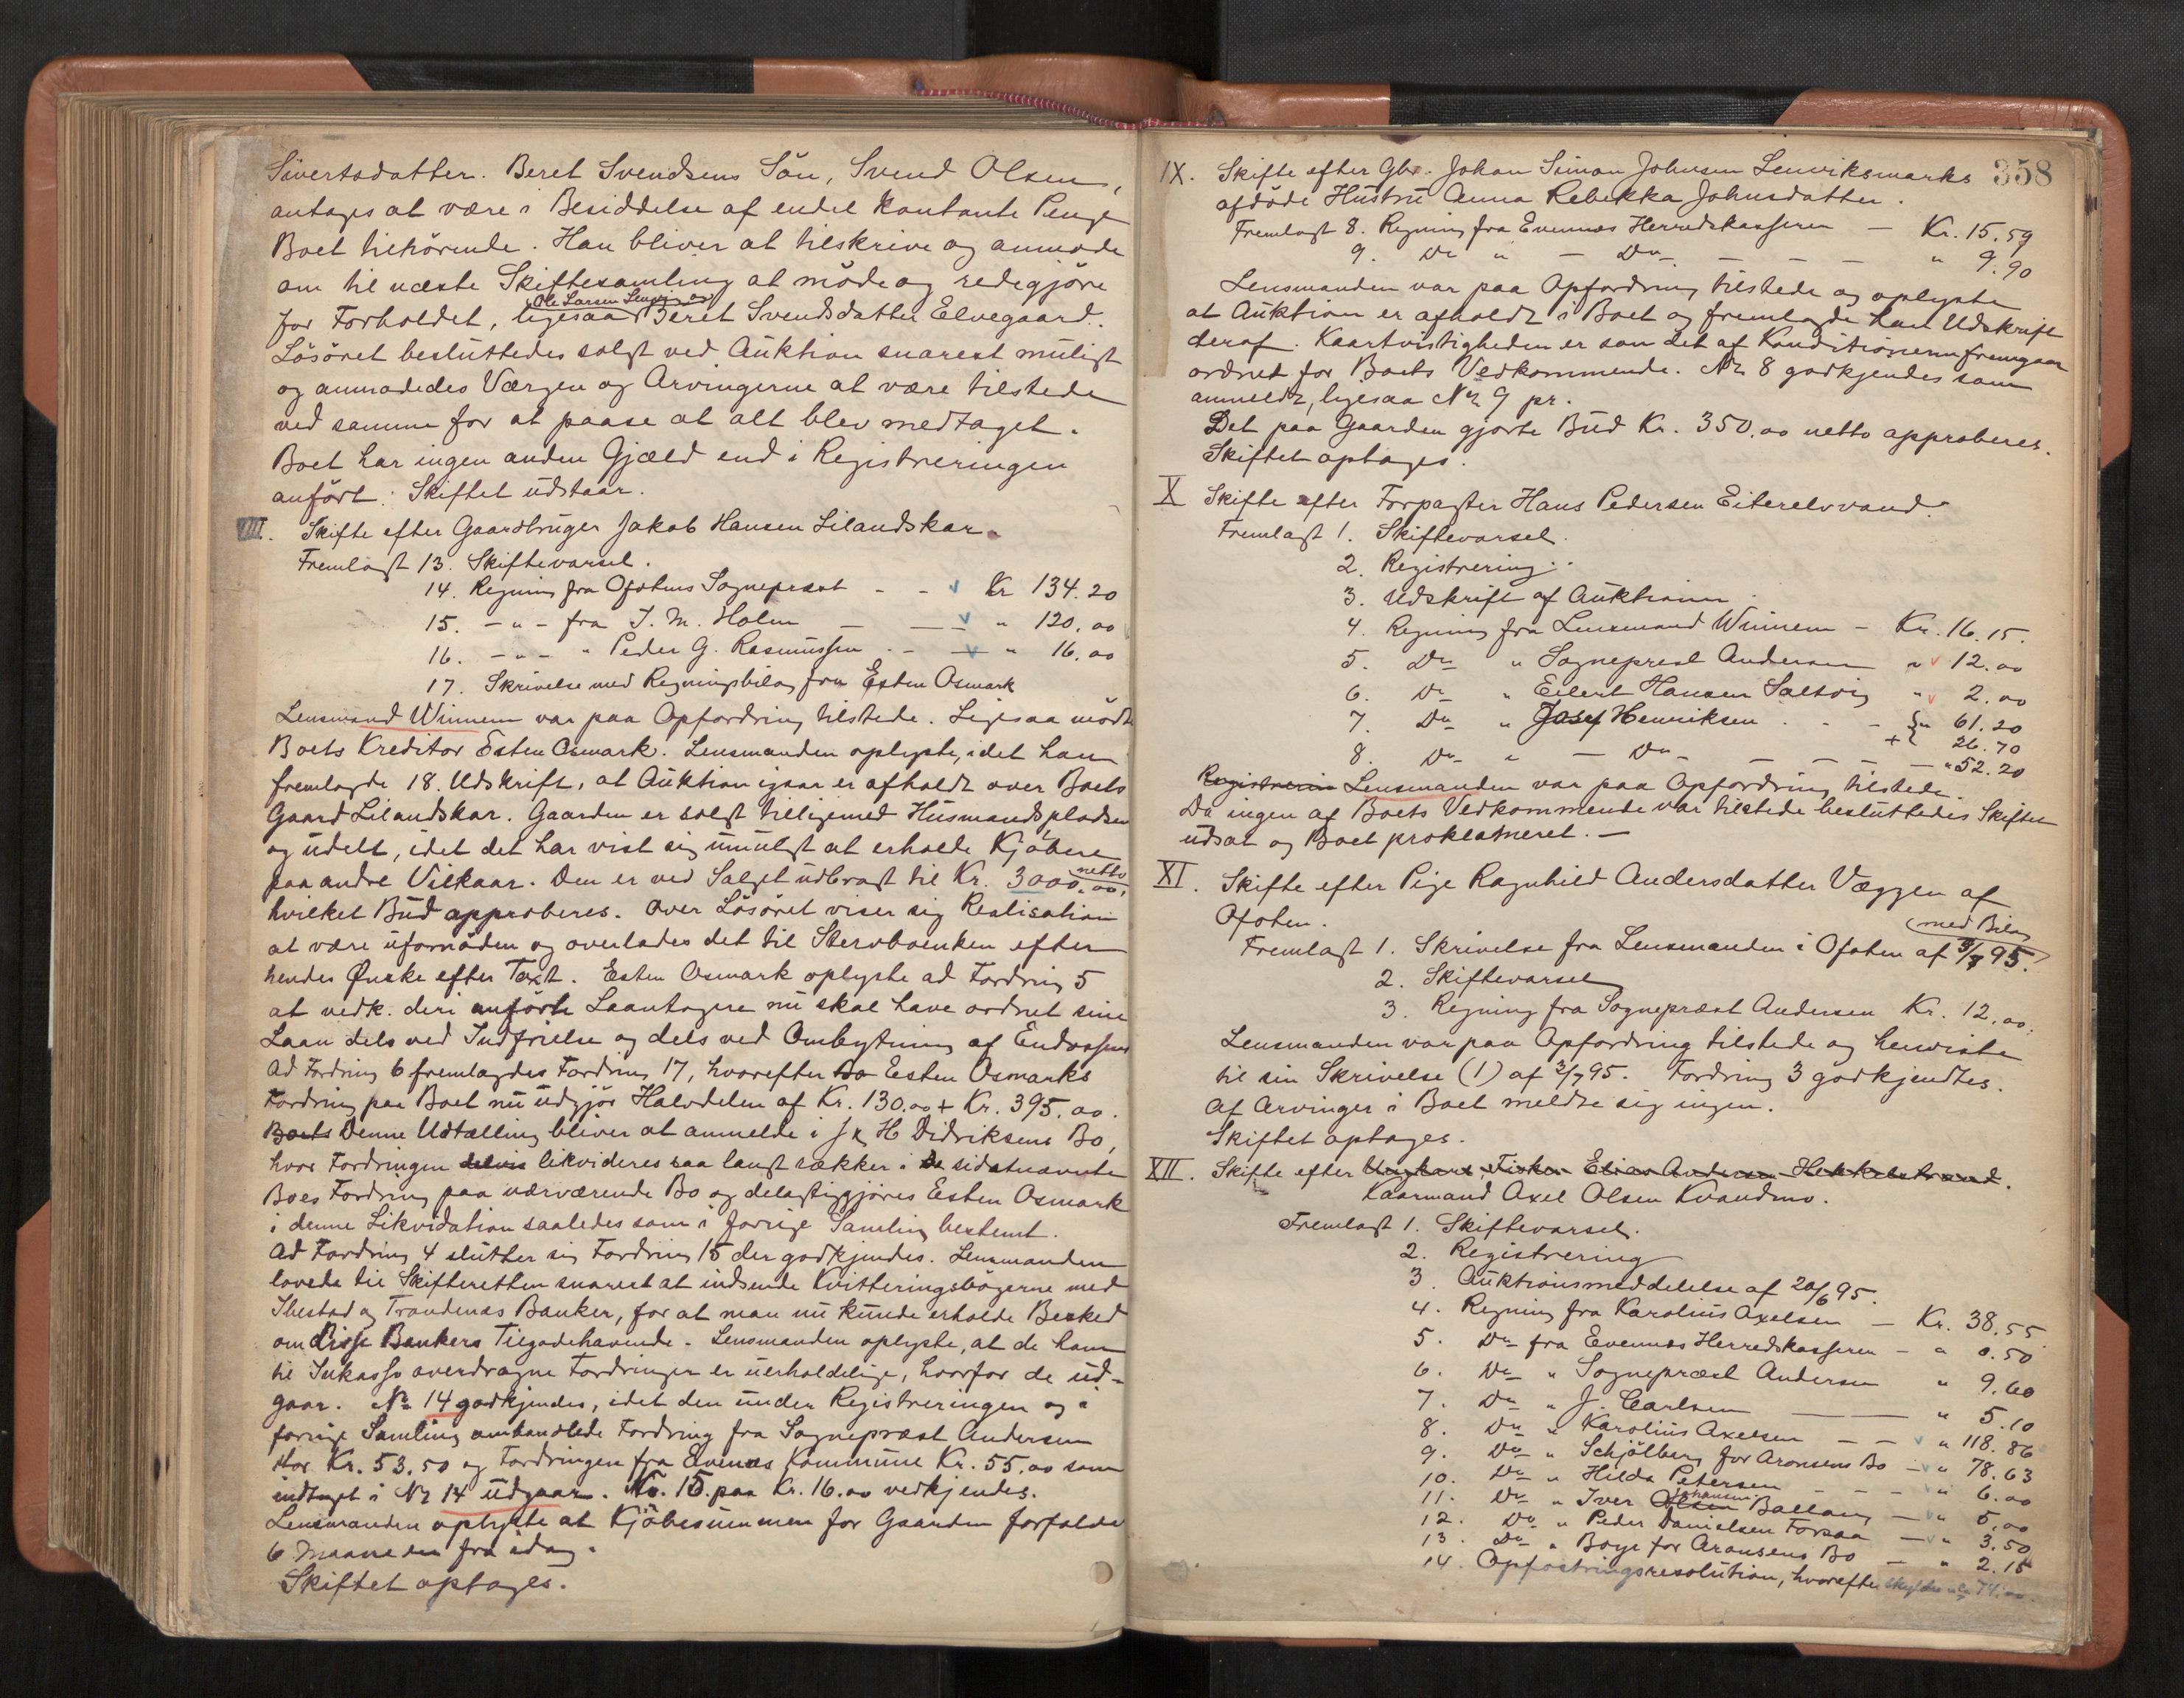 Sivertsdatter. Beret Svendsens Sön, Svend Olsen,
antages at være i Besiddelse af endel Kontante Penge
Boet tilhörende. Han bliver at tilskrive og anmode
om til næste Skiftesamling at möde og redegjöre
Ole Larsen Lenvig og
for Forholdet, ligesaa Beret Svendsdatter Elvegaard.
Lösöret besluttedes solgt ved Auktion snarest muligt
og anmodedes Værgen og Arvingerne at være tilstede
ved samme for at paase at alt blev medtaget.
Boet har ingen anden Gjæld end i Registreringen
anfört. Skiftet udstaar.
VIII. Skifte efter Gaardbruger Jakob Hansen Lilandskar.
Fremlagt 13. Skiftevarsel.
14. Regning fra Ofotens Sogneprest - - Kr 134.20
15. - " - fra J. M. Holm — — " 120.00
16. - " - " Peder G. Rasmussen - — " 16.00
17. Skrivelse med Regningsbilag fra Esten Osmark
Lensmand Winnem var paa Opfordring tilstede. Ligesaa mödte
Boets Kreditor Esten Osmark. Lensmanden oplyste, idet han
fremlagde 18. Udskrift, at Auktion igaar er afholdt over Boets
Gaard Lilandskar. Gaarden er solgt tilligemed Husmandspladsen
og udelt, idet det har vist sig umuligt at erholde Kjöbere
paa andre Vilkaar. Den er ved Salget udbragt til Kr. 3000.00, netto
hvilket Bud approberes. Over Lösöret viser sig Realisation
at være ufornöden og overlades det til Stervboenken efter
hendes Ønske efter Taxt. Esten Osmark oplyste ad Fordring 5
at vedk. deri anförte Laantagere nu skal have ordnet sine
Laan dels ved Indfrielse og dels ved Ombytning af Endossens
Ad Fordring 6 fremlagdes Fordring 17, hvorefter Bo Esten Osmarks
Fordring paa Boet nu udgjör Halvdelen af Kr. 130.00 + Kr. 395.00.
Boets Denne Udtælling bliver at anmelde i J. H Didriksens Bo,
hvor Fordringen delvis likvideres saa langt rækker i de sidstnævnte
Boes Fordring paa nærværende Bo og delagtiggjöres Esten Osmark
i denne Likvidation saaledes som i forrige Samling bestemt.
Ad Fordring 4 slutter sig Fordring 15 der godkjendes. Lensmanden
lovede til Skifteretten snarest at indsende Kvitteringsbögerne med
Ibestad og Trondenæs Banker, for at man nu kunde erholde Besked
om disse Bankers Tilgodehavende. Lensmanden oplyste, at de ham
til Inkasso overdragne Fordringer er uerholdelige, hvorfor de ud-
gaar. No 14 godkjendes, idet den under Registreringen og i
forrige Samling omhandlede Fordring fra Sogneprest Andersen
stor Kr. 53.50 og Fordringen fra Evenæs Kommune Kr. 55.00 som
indtaget i No 14 udgaar. No. 15. paa Kr. 16.00 vedkjendes.
Lensmanden oplyste at Kjöbesummen for Gaarden forfalder
6 Maaneder fra idag.
Skiftet optages.
358
IX. Skifte efter Gbr. Johan Simon Johnsen Lenviksmarks
afdöde Hustru Anna Rebekka Johnsdatter.
Fremlagt 8. Regning fra Evenæs Herredskasserer — Kr. 15.59
9. Do " — Do — — — " 9.90
Lensmanden var paa Opfordring tilstede og oplyste
at Auktion er afholdt i Boet og fremlagde han Udskrift
deraf. Kaartvistigheden er som det af Konditionerne fremgaar
ordnet for Boets Vedkommende. No 8 godkjendes som
anmeldt, ligesaa No 9 pr.
Det paa Gaarden gjorte Bud Kr. 350.00 netto approberes.
Skiftet optages.
X Skifte efter Forpagter Hans Pedersen Eiterelvvand.
Fremlagt 1. Skiftevarsel.
2. Registrering.
3. Udskrift af Auktionen
4. Regning fra Lensmand Winnem — Kr. 16.15.
5. Do " Sogneprest Andersen " 12.00
6. Do " Eilert Hansen Saltvig " 2.00
7. Do " Josef Henriksen . - - " 61.20
+ 26.70
8. Do " — Do — — — — " 52.20
Registrerin Lensmanden var paa Opfordring tilstede.
Da ingen af Boets Vedkommende var tilstede besluttedes Skiftet
udsat og Boet proklameret. —
XI. Skifte efter Pige Ragnhild Andersdatter Væggen af
Ofoten.
med Bilag
Fremlagt 1. Skrivelse fra Lensmanden i Ofoten af 3/7 95.
2. Skiftevarsel
3. Regning fra Sogneprest Andersen Kr. 12.00.
Lensmanden var paa Opfordring tilstede og henviste
til sin Skrivelse (1) af 3/7 95. Fordring 3 godkjendtes.
Af Arvinger i Boet meldte sig ingen.
Skiftet optages.
XII. Skifte efter Ungkarl, Fisker Elias Andersen Hekkelstrand.
Kaarmand Axel Olsen Kvandmo.
Fremlagt 1. Skiftevarsel.
2. Registrering
3. Auktionsmeddelelse af 20/6 95.
4. Regning fra Karolius Axelsen — Kr. 38.55
5. Do fra Evenæs Herredskasserer - " 0.50
6. Do " Sogneprest Andersen " 9.60
7. Do " J. Carlsen — — " 5.10
8. Do " Karolius Axelsen — — " 118.86
9. Do " Schjölberg for Aronsens Bo — " 78.63
10. Do " Hilda Petersen - - - " 6.00
11. Do " Iver Olsen Johansen Ballang — " 5.00
12. Do " Peder Danielsen Forsaa — " 3.50
13. Do " Boye for Aronsens Bo — " 2.15
14. Opfostringsresolution, hvorefter skyldes 74.00.